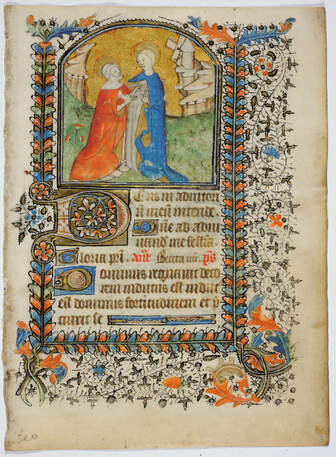 Deus in adiutori
ũ meũ intende
Dñe ad adiu
uand me festina
Gloria pri Beata ps
Dominus regnauit deco
rem indutus est indut
est dominus fortitudinem et p
cinxit se